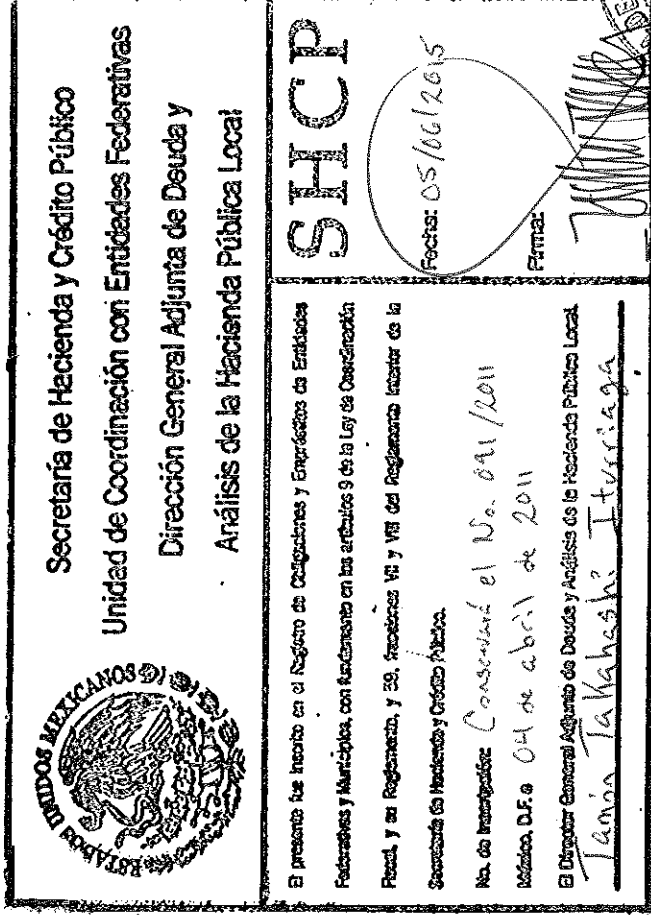 ESTADOS UNIDOS MEXICANOS
Secretaría de Hacienda y Crédito Público
Unidad de Coordinación con Entidades Federativas
Dirección General Adjunta de Deuda y
Análisis de la Hacienda Pública Local
El presente fue inscrito en el Registro de Obligaciones y Empréstitos de Entidades
Federativas y Municipios, con fundamento en los artículos 9 de la Ley de Coordinación
Fiscal, y su Reglamento, y 39, fracciones VII y VIII del Reglamento Interior de la
Secretaría de Hacienda y Crédito Público.
No. de Inscripción: Conservará el No. 091/2011
México, D.F. a 04 de abril de 2011
El Director General Adjunto de Deuda y Análisis de la Hacienda Pública Local.
Takahashi Iturriaga
SHCP
Fecha: 05/06/2015
Firma: